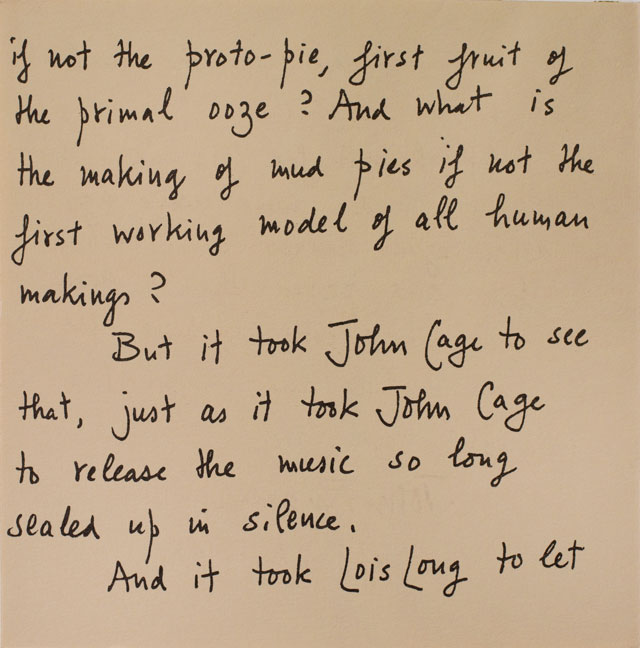 if not the proto-pie, first fruit of
the primal ooze? And what is
the making of mud pies if not the
first working model of all human
makings?
But it took John Cage to see
that, just as it took John Cage
to release the music so long
sealed up in silence.
And it took Lois Long to let